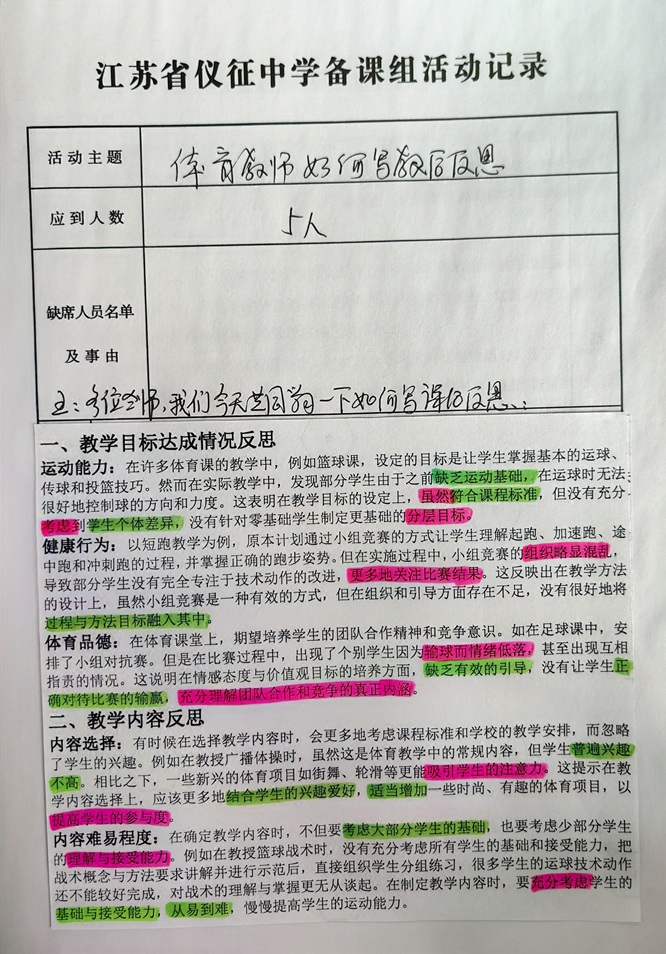 江苏省仪征中学备课组活动记录
活动主题
体育教师如何写教后反思
应到人数
5人
缺席人员名单
及事由
主：各位老师，我们今天共同学习一下如何写课后反思：
一、教学目标达成情况反思
运动能力：在许多体育课的教学中，例如篮球课，设定的目标是让学生掌握基本的运球、
传球和投篮技巧。然而在实际教学中，发现部分学生由于之前缺乏运动基础，在运球时无法
很好地控制球的方向和力度。这表明在教学目标的设定上，虽然符合课程标准，但没有充分
考虑到学生个体差异，没有针对零基础学生制定更基础的分层目标。
健康行为：以短跑教学为例，原本计划通过小组竞赛的方式让学生理解起跑、加速跑、途
中跑和冲刺跑的过程，并掌握正确的跑步姿势。但在实施过程中，小组竞赛的组织略显混乱，
导致部分学生没有完全专注于技术动作的改进，更多地关注比赛结果。这反映出在教学方法
的设计上，虽然小组竞赛是一种有效的方式，但在组织和引导方面存在不足，没有很好地将
过程与方法目标融入其中。
体育品德：在体育课堂上，期望培养学生的团队合作精神和竞争意识。如在足球课中，安
排了小组对抗赛。但是在比赛过程中，出现了个别学生因为输球而情绪低落，甚至出现互相
指责的情况。这说明在情感态度与价值观目标的培养方面，缺乏有效的引导，没有让学生正
确对待比赛的输赢，充分理解团队合作和竞争的真正内涵。
二、教学内容反思
内容选择：有时候在选择教学内容时，会更多地考虑课程标准和学校的教学安排，而忽略
了学生的兴趣。例如在教授广播体操时，虽然这是体育教学中的常规内容，但学生普遍兴趣
不高。相比之下，一些新兴的体育项目如街舞、轮滑等更能吸引学生的注意力。这提示在教
学内容选择上，应该更多地结合学生的兴趣爱好，适当增加一些时尚、有趣的体育项目，以
提高学生的参与度。
内容难易程度：在确定教学内容时，不但要考虑大部分学生的基础，也要考虑少部分学生
的理解与接受能力。例如在教授篮球战术时，没有充分考虑所有学生的基础和接受能力，把
战术概念与方法要求讲解并进行示范后，直接组织学生分组练习，很多学生的运球技术动作
还不能较好完成，对战术的理解与掌握更无从谈起。在制定教学内容时，要充分考虑学生的
基础与接受能力，从易到难，慢慢提高学生的运动能力。